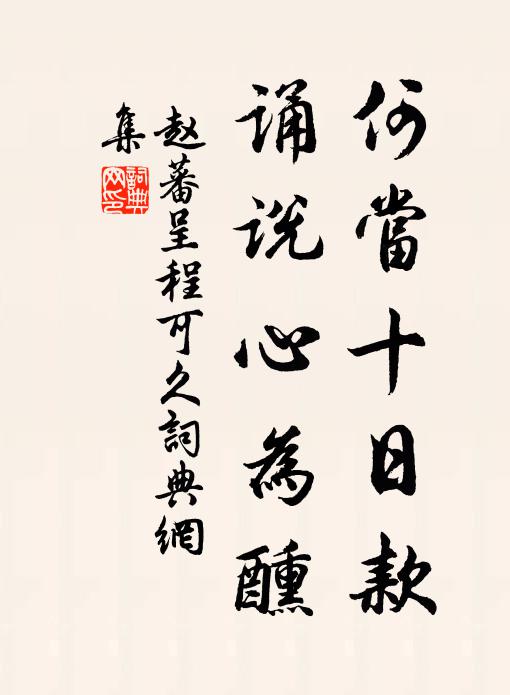 何當十日款
誦説心為醺
赵蕃呈程可久詞典網
集
詞典網印